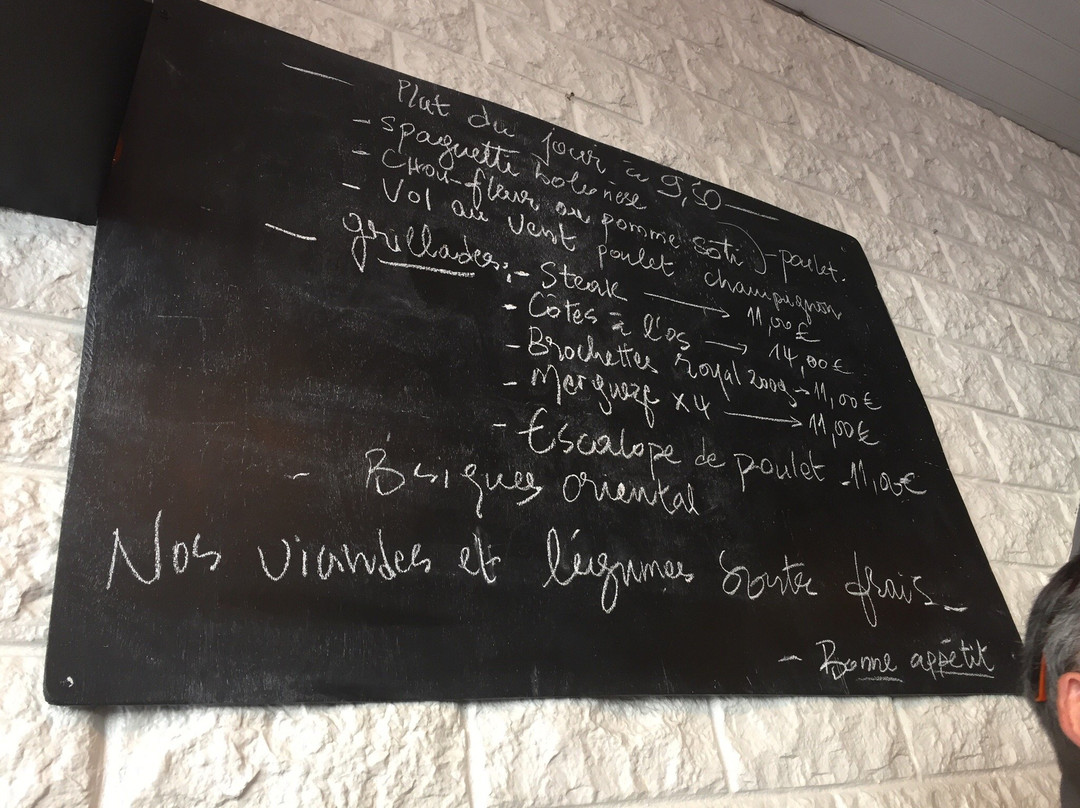 Plat du jour à 9,50
- spaguetti bolognese
- Chou-fleur au pomme soti - poulet.
- Vol au vent poulet champignon
- grillades: - Steak → 11,00€
- Côtes à l'os → 14,00€
- Brochettes royal 200g - 11,00€
- Mergueze x4 → 11,00€
- Escalope de poulet - 11,00€
- oriental
Nos viandes et légumes sonts frais -
- Bonne appétit